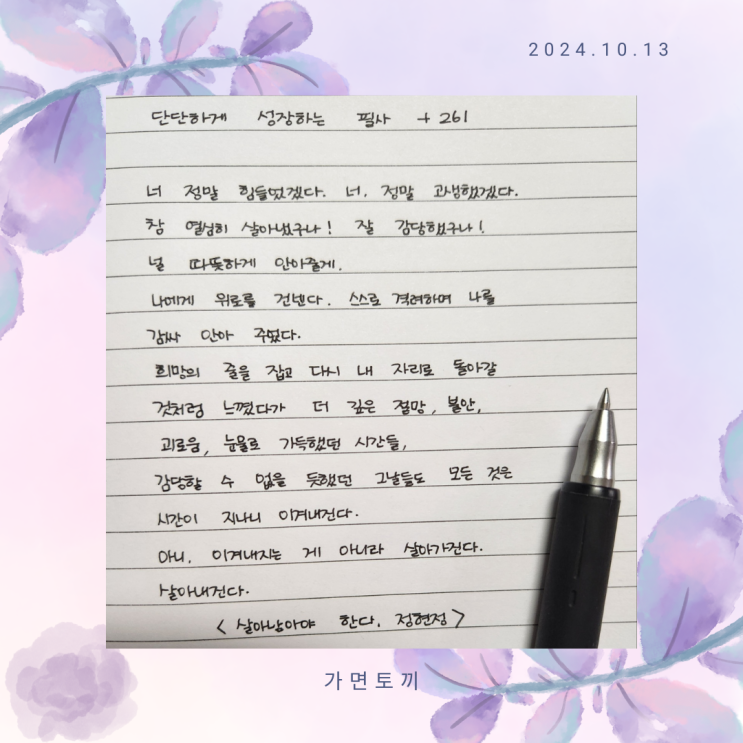 2024.10.13
단단하게 성장하는 필사 + 261
너 정말 힘들었겠다. 너, 정말 고생했겠다.
참 열심히 살아냈구나! 잘 감당했구나!
널 따뜻하게 안아줄게.
나에게 위로를 건넨다. 스스로 격려하며 나를
감싸 안아 주었다.
희망의 줄을 잡고 다시 내 자리로 돌아갈
것처럼 느꼈다가 더 깊은 절망, 불안,
괴로움, 눈물로 가득했던 시간들,
감당할 수 없을 듯했던 그날들도 모든 것은
시간이 지나니 이겨내진다.
아니, 이겨내지는 게 아니라 살아가진다.
살아내진다.
< 살아남아야 한다, 정현정 >
가면토끼